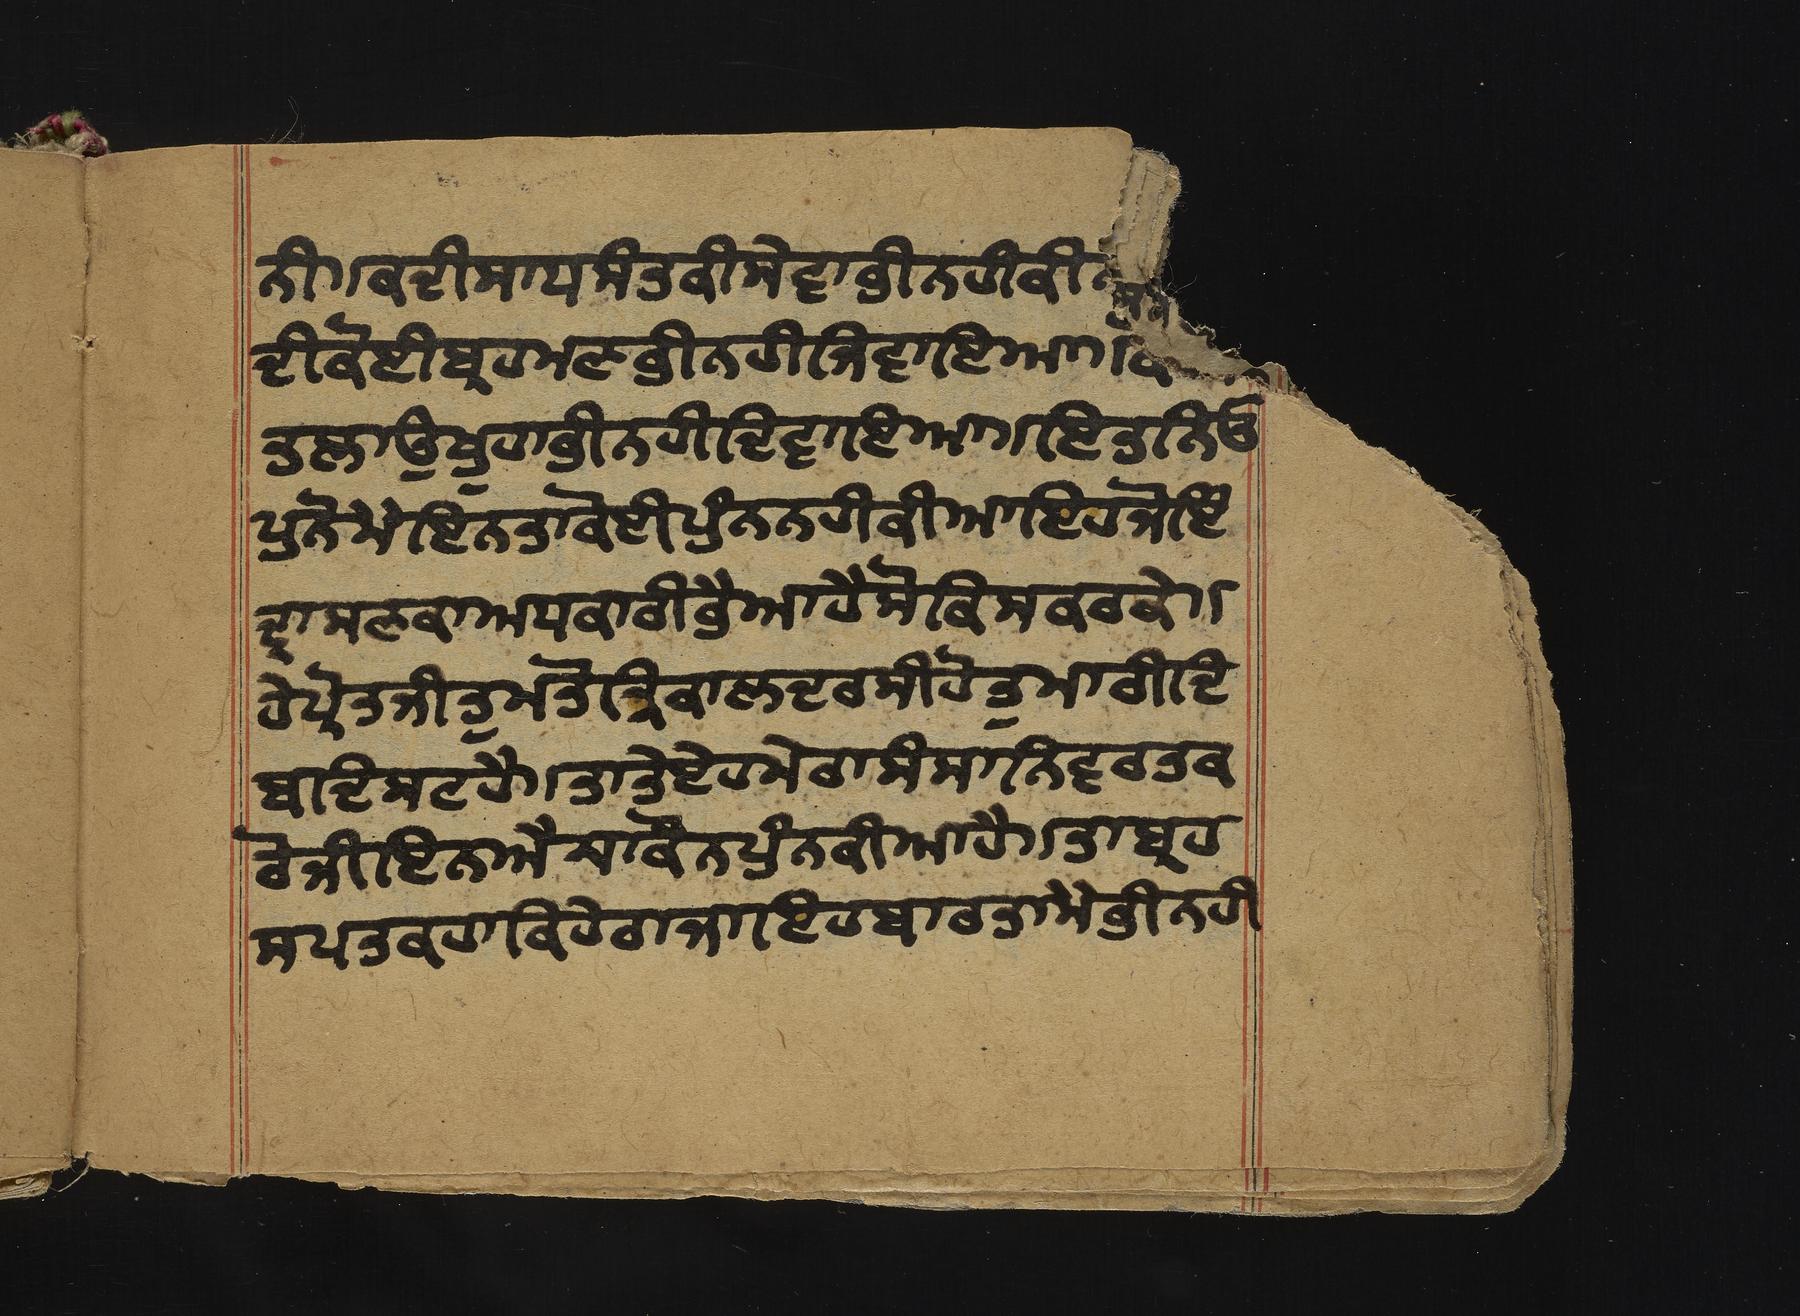 ਨੀ।ਕਦੀਸਾਧਸੰਤਕੀਸੇਵਾਭੀਨਹੀਕੀ
ਦੀਕੋਈਬ੍ਰਹਮਣਭੀਨਹੀਜਿਵਾਇਆ।ਕ
ਤਲਾਉਖੂਹਾਭੀਨਹੀਦਿਵਾਇਆ।ਇਤਨਿਓ
ਪੁਨੋਮੇਇਨਤਾਕੋਈਪੁੰਨਨਹੀਕੀਆਇਹਜੋਇੰ
ਦ੍ਰਾਸਣਕਾਅਧਕਾਰੀਭੈਆਹੈਸੋਕਿਸਕਰਕੇ।
ਹੇਪ੍ਰੋਤਜੀਤੁਮਤੋਤ੍ਰਿਕਾਲਦਰਸੀਹੋਤੁਮਾਰੀਦਿ
ਬਾਦਿਸਟਹੈ।ਤਾਤੇਏਹਮੇਰਾਸੰਸਾਨਿਵਰਤਕ
ਰੋਜੀਇਨਐਸਾਕੌਨਪੁੰਨਕੀਆਹੈ।ਤਾਬ੍ਰਹ
ਸਪਤਕਹਾਕਿਹੇਰਾਜਾਇਹਬਾਰਤਾਮੇਭੀਨਹੀ